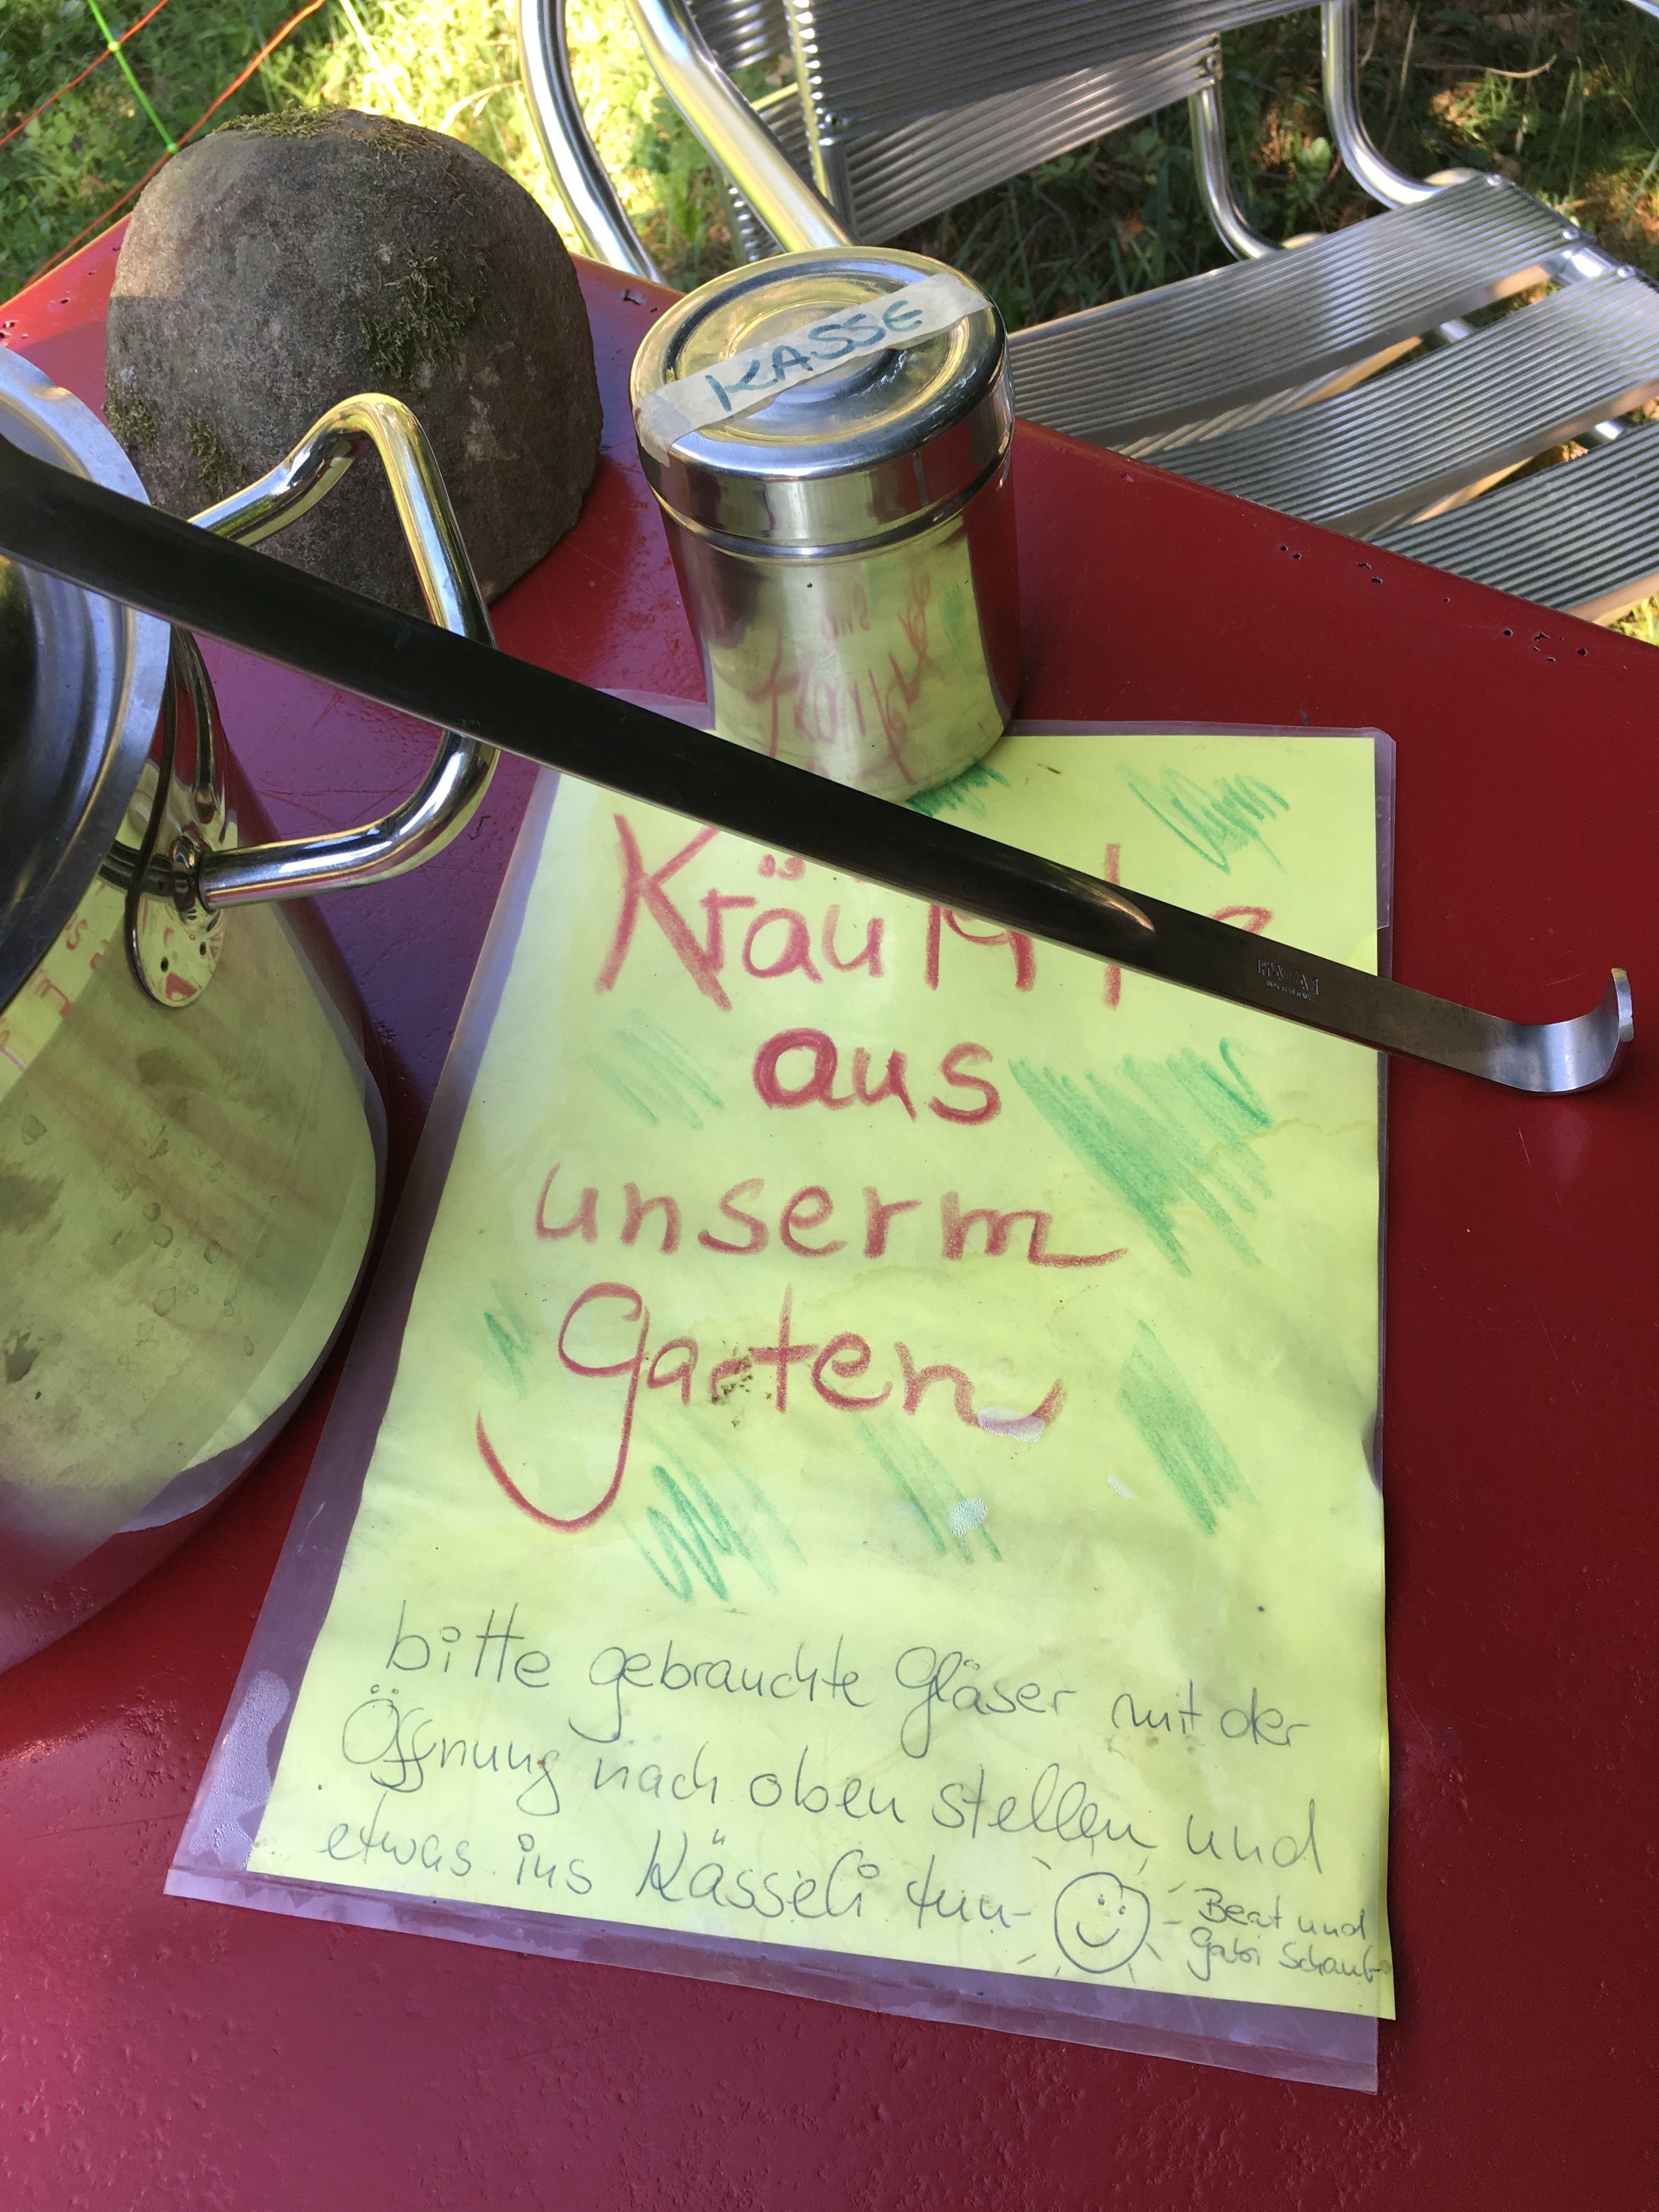 KASSE
aus
unserm
Garten
bitte gebrauchte Gläser mit der
Öffnung nach oben stellen und
etwas ins Kässeli tun
Beat und
Gabi Schaub